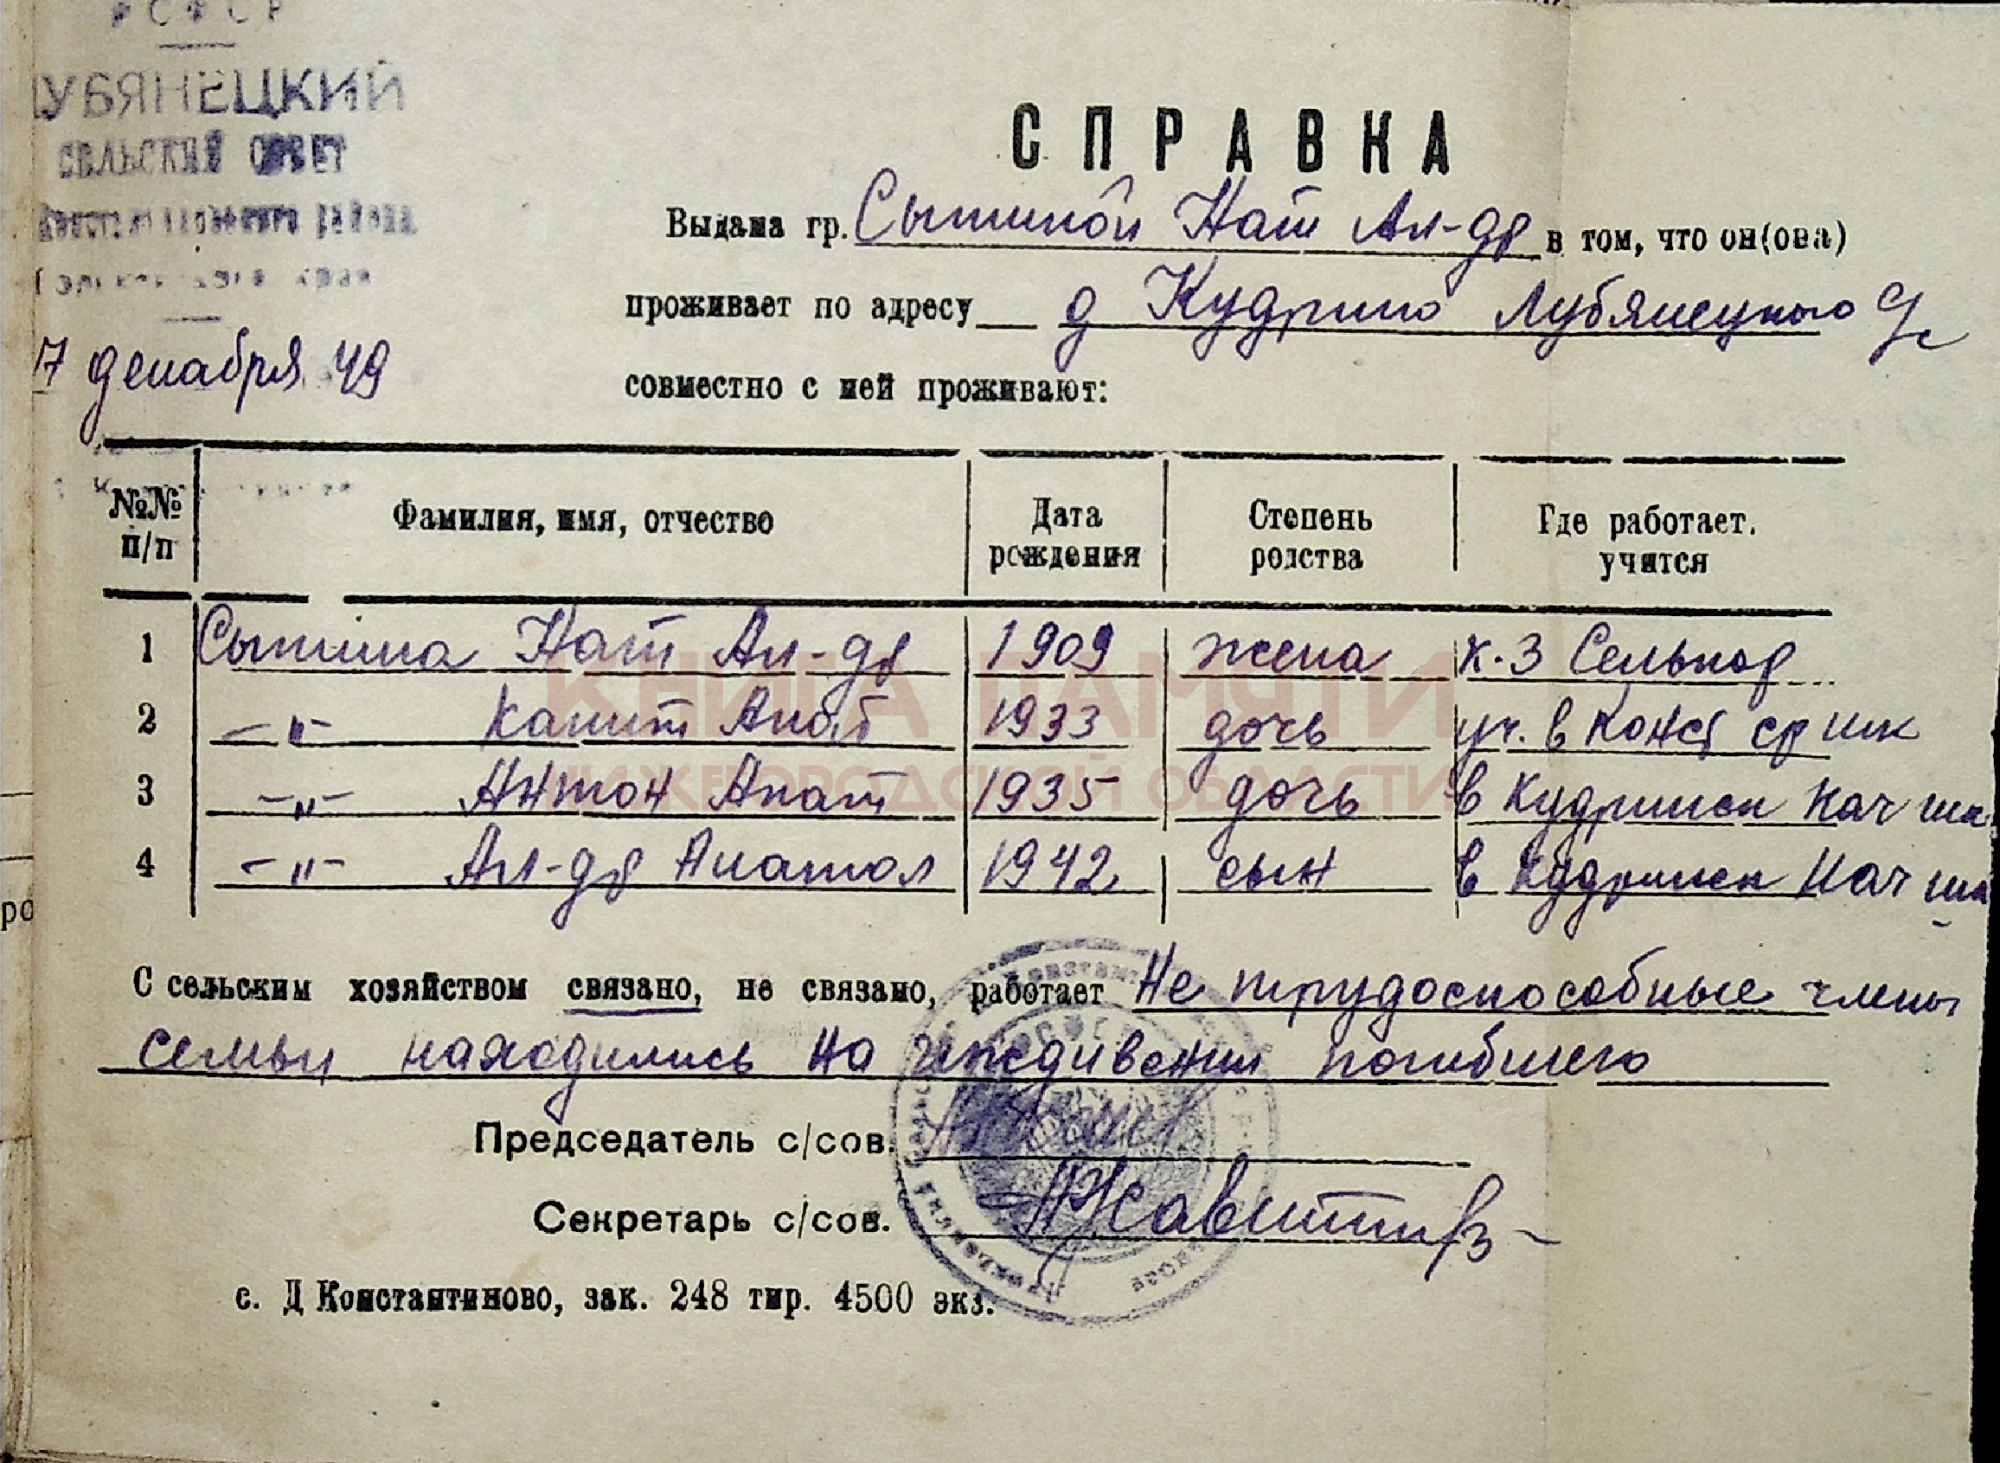 РСФСР
ЛУБЯНЕЦКИЙ
СЕЛЬСКИЙ СОВЕТ
Константиновского района
края
17 декабря 49
СПРАВКА
Выдана гр. Сытиной Нат Ал-др в том, что он(она)
проживает по адресу д Кудрино Лубянецкого с/с
совместно с ней проживают:
№№ п/п Фамилия, имя, отчество Дата рождения Степень родства Где работает. учится
1 Сытина Нат Ал-др 1909 жена к-з Сельхоз
2 -"- Капит Анат 1933 дочь уч. в Конст ср шк
3 -"- Антон Анат 1935 дочь в Кудринск Нач шк
4 -"- Ал-др Анатол 1942 сын в Кудринск Нач шк
КНИГА ПАМЯТИ
НИЖЕГОРОДСКОЙ ОБЛАСТИ
С сельским хозяйством связано, не связано, работает Не трудоспособные члены
семьи находились на иждивении погибшего
Председатель с/сов.
Секретарь с/сов.
с. Д Константиново, зак. 248 тир. 4500 экз.